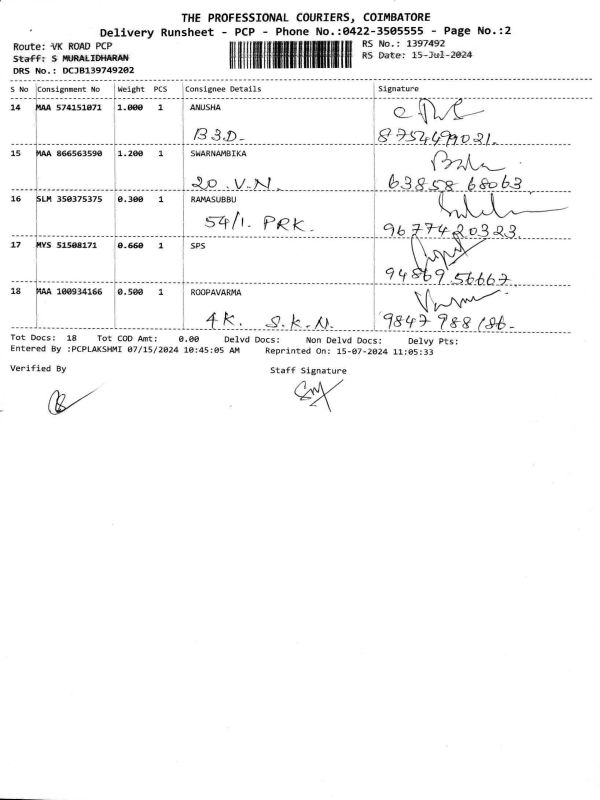 THE PROFESSIONAL COURIERS, COIMBATORE
Delivery Runsheet - PCP - Phone No.:0422-3505555 - Page No.:2
Route: VK ROAD PCP
RS No.: 1397492
Staff: S MURALIDHARAN
RS Date: 15-Jul-2024
DRS No.: DCJB139749202
S No Consignment No Weight PCS Consignee Details Signature
14 MAA 574151071 1.000 1 ANUSHA
B3D. 8754499021.
15 MAA 866563590 1.200 1 SWARNAMBIKA
20 V.N. 63858 68063
16 SLM 350375375 0.300 1 RAMASUBBU
54/1. PRK. 96774 20323
17 MYS 51508171 0.660 1 SPS
94869 56667
18 MAA 100934166 0.500 1 ROOPAVARMA
4K. S.K.N. 9847 988 186-
Tot Docs: 18 Tot COD Amt: 0.00 Delvd Docs: Non Delvd Docs: Delvy Pts:
Entered By :PCPLAKSHMI 07/15/2024 10:45:05 AM Reprinted On: 15-07-2024 11:05:33
Verified By Staff Signature